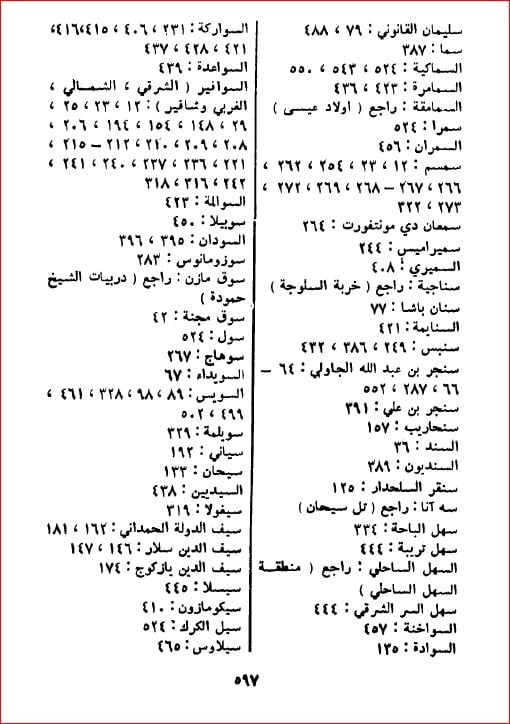 سليمان القانوني : ٧٩ ، ٤٨٨
سما : ٣٨٧
السماكية : ٥٢٤ ، ٥٤٣ ، ٥٥٠
السمامرة : ٤٢٣ ، ٤٣٦
السمامقة : راجع ( اولاد عيسى )
سمرا : ٥٢٤
السمران : ٤٥٦
سمسم : ١٢ ، ٢٣ ، ٢٥٤ ، ٢٦٢ ،
٢٦٦ ، ٢٦٧ – ٢٦٨ ، ٢٦٩ ، ٢٧٢ ،
٢٧٣ ، ٣٢٢
سمعان دي مونتفورت : ٢٦٤
سميراميس : ٢٤٤
السميري : ٤٠٨
سناجية : راجع ( خربة السلوجة )
سنان باشا : ٧٧
السنايمة : ٤٢١
سنبس : ٢٤٩ ، ٣٨٦ ، ٤٣٢
سنجر بن عبد الله الجاولي : ٦٤ –
٦٦ ، ٢٨٧ ، ٥٥٢
سنجر بن علي : ٣٩١
سنحاريب : ١٥٧
السند : ٣٦
السنديون : ٣٨٩
سنقر السلحدار : ١٢٥
سه آنا : راجع ( تل سيحان )
سهل الباحة : ٣٣٤
سهل تريبة : ٤٤٤
السهل الساحلي : راجع ( منطقة
السهل الساحلي )
سهل السر الشرقي : ٤٤٤
السواخنة : ٤٥٧
السوادة : ١٣٥
السواركة : ٢٣١ ، ٤٠٦ ، ٤١٥ ،٤١٦،
٤٢١ ، ٤٢٨ ، ٤٣٧
السواعدة : ٤٣٩
السوافير ( الشرقي ، الشمالي ،
الغربي وتسافير ) : ١٢ ، ٢٣ ، ٢٥ ،
٢٩ ، ١٤٨ ، ١٥٤ ، ١٩٤ ، ٢٠٦ ،
٢٠٨ ، ٢٠٩ ، ٢١٠ ، ٢١٢ – ٢١٥ ،
٢٢١ ، ٢٣٦ ، ٢٣٧ ، ٢٤٠ ، ٢٤١ ،
٢٤٢ ، ٣١٦ ، ٣١٨
السوالمة : ٤٢٣
سوبيلا : ٤٥٠
السودان : ٣٩٥ ، ٣٩٦
سوزومانوس : ٢٨٣
سوق مازن : راجع ( دربيات الشيخ
حمودة )
سوق مجنة : ٤٢
سول : ٥٢٤
سوهاج : ٢٦٧
السويداء : ٦٧
السويس : ٨٩ ، ٩٨ ، ٣٢٨ ، ٤٦١ ،
٤٩٩ ، ٥٠٢
سويلمة : ٣٢٩
سياني : ١٩٢
سيحان : ١٣٣
السيديين : ٤٣٨
سيغولا : ٣١٩
سيف الدولة الحمداني : ١٦٢ ، ١٨١
سيف الدين سلار : ١٤٦ ، ١٤٧
سيف الدين يازكوج : ١٧٤
سيسلا : ٤٤٥
سيكومازون : ٤١٠
سيل الكرك : ٥٢٤
سيلاوس : ٤٦٥
٥٩٧